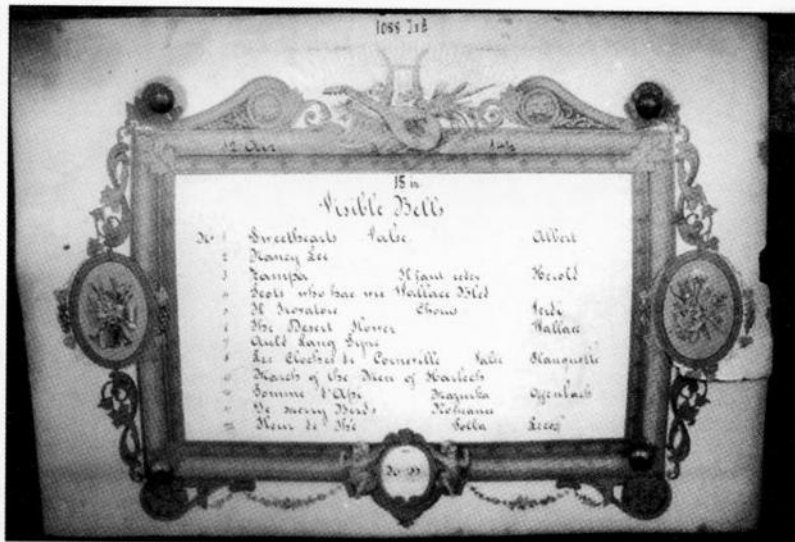 12 Airs
15 in
Visible Bells
No 1 Sweethearts Valse Albert
2 Nancy Lee
3 Zampa Il faut ceder Herold
4 Scots who hae wie Wallace Bled
5 Il Trovatore Chorus Verdi
6 The Desert Flower Wallace
7 Auld Lang Syne
8 Les Cloches de Corneville Valse Planquette
9 March of the Men of Harlech
10 Pomme d'Api Mazurka Offenbach
11 Ye merry Birds
12 Fleur de Thé Polka Lecocq